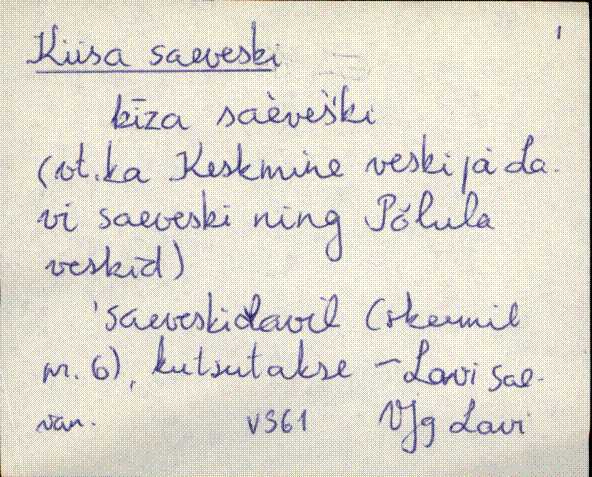 1
Kiisa saeveski
kīza saèveški
(vt. ka Keskmine veski ja La-
vi saeveski ning Põlula
veskid)
'saeveski Lavil (skeemil
nr. 6), kutsutakse – Lavi sae-
van.
VS61 VJg Lavi